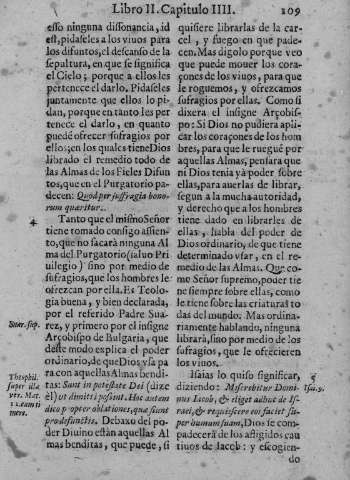 Libro II. Capitulo IIII. 109
esso ninguna dissonancia, id
est, pidaseles a los viuos para
los difuntos, el descanso de la
sepultura, en que se significa
el Cielo; porque a ellos les
pertenece el darlo. Pidaseles
juntamente que ellos lo pi-
dan, porque en tanto les per
tenece el darlo, en quanto
puede ofrecer sufragios por
ellos; en los quales tiene Dios
librado el remedio todo de
las Almas de los Fieles Difun
tos, que en el Purgatorio pa-
decen: Quod per suffragia bono-
rum quæritur.
Tanto que el mismo Señor
tiene tomado consigo assien-
to, que no sacarà ninguna Al
ma del Purgatorio (saluo Pri
uilegio) sino por medio de
sufragios, que los hombres le
ofrezcan por ella. Es Teolo-
gia buena, y bien declarada,
por el referido Padre Sua-
Suar. sup.
rez, y primero por el insigne
Arçobispo de Bulgaria, que
deste modo explica el poder
ordinario, de que Dios vsa pa
Theophil.
super illæ
ver. Mat.
ra con aquellas Almas bendi-
tas: Sunt in potestate Dei (dize
èl) ut dimitti possint. Hoc autem
dico propter oblationes, quæ fiunt
pro defunctis. Debaxo del po-
der Diuino estàn aquellas Al
mas benditas, que puede, si
quisiere librarlas de la car-
cel, y fuego en que pade-
cen. Mas digolo porque veo
que puede mouer los cora-
çones de los viuos, para que
le roguemos, y ofrezcamos
sufragios por ellas. Como si
dixera el insigne Arçobis-
po: Si Dios no pudiera apli-
car los coraçones de los hom
bres, para que le ruegue por
aquellas Almas, pensara que
ni Dios tenia yà poder sobre
ellas, para auerlas de librar,
segun a la mucha autoridad,
y derecho que a los hombres
tiene dado en librarlas de
ellas, habla del poder de
Dios ordinario, de que tiene
determinado vsar, en el re-
medio de las Almas. Que co-
mo Señor supremo, poder tie
ne siempre sobre ellas, como
le tiene sobre las criaturas to
das del mundo. Mas ordina-
riamente hablando, ninguna
librarà, sino por medio de los
sufragios, que le ofrecieren
los viuos.
Isaias lo quiso significar,
diziendo: Miserebitur Domi-
Isai.
nus Iacob, & eliget adhuc de Is-
rael, & requiescere eos faciet su-
per humum suam, Dios se com-
padecerà de los afligidos cau
tiuos de Iacob: y escogien-
do